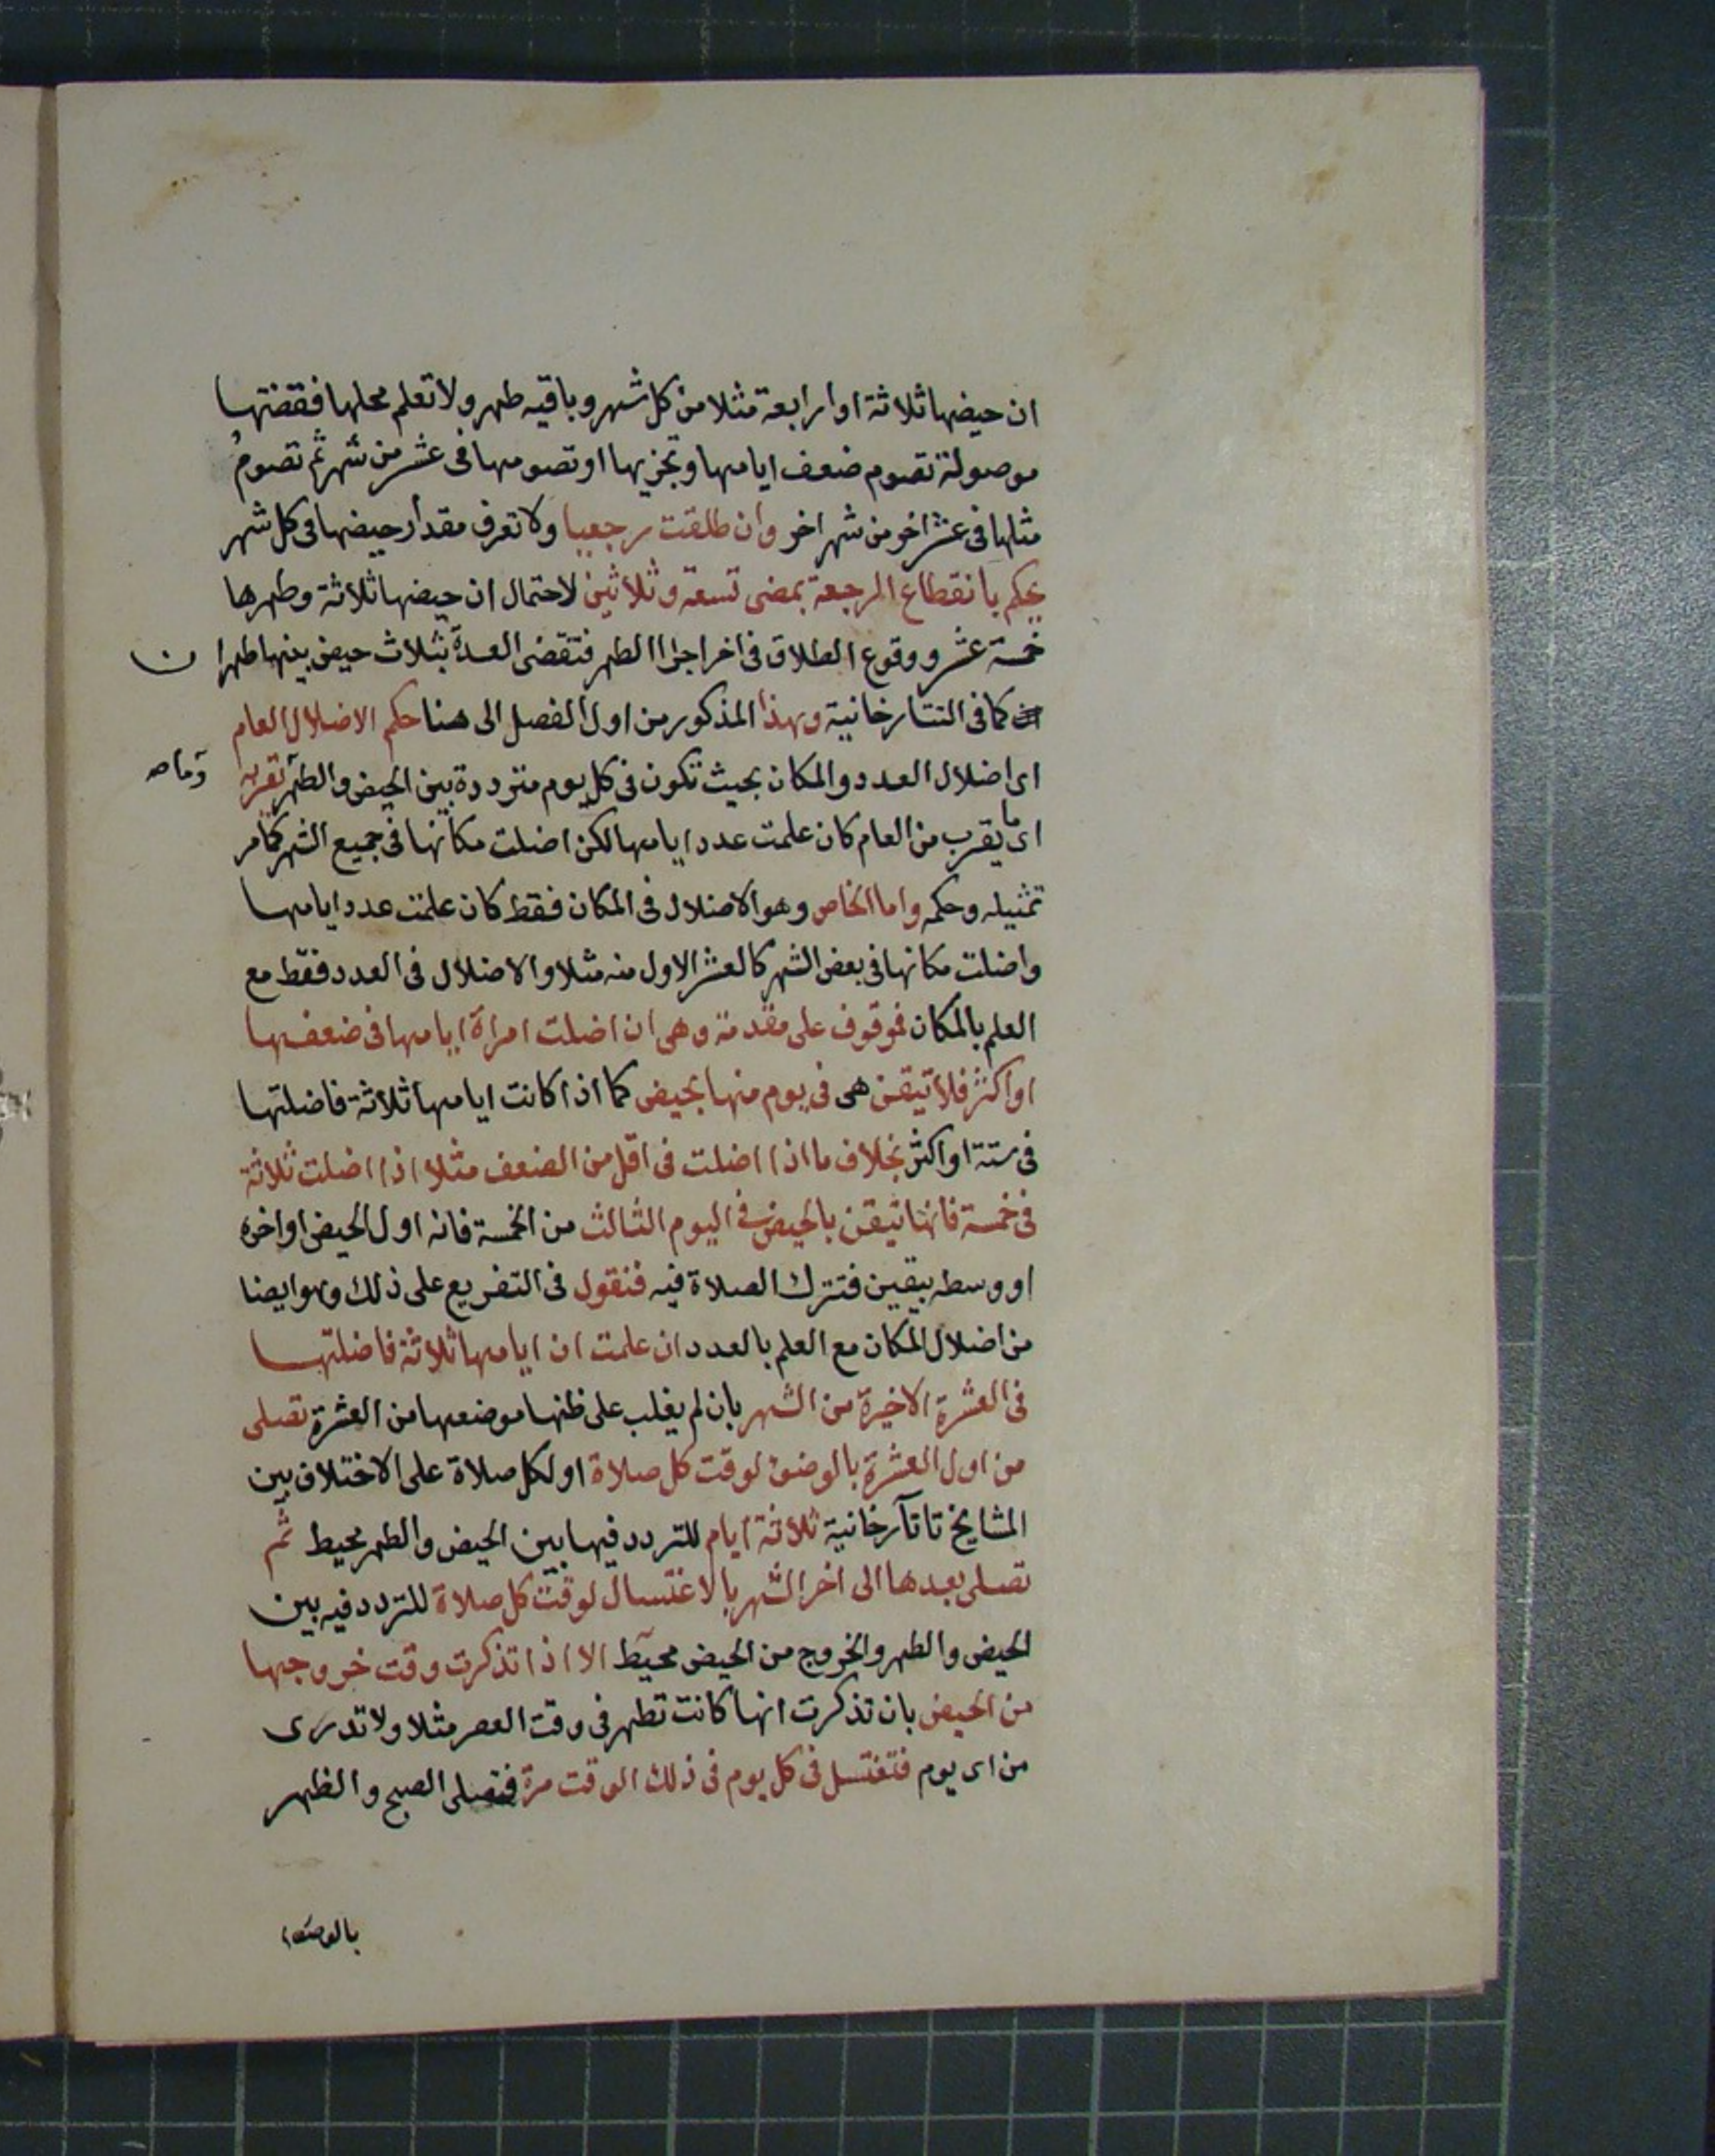 ان حيضها ثلاثة او اربعة مثلا من كل شهر وباقيه طهر ولا تعلم محلها فقضتها
موصولة تصوم ضعف ايامها وتجزيها او تصومها فى عشر من شهر ثم تصوم
مثلها فى عشر اخر من شهر اخر وان طلقت رجعيا ولا تعرف مقدار حيضها فى كل شهر
يحكم بانقطاع الرجعة بمضى تسعة وثلاثين لاحتمال ان حيضها ثلاثة وطهرها
خمسة عشر ووقوع الطلاق فى اخر اجزا الطهر فتقضى العدة بثلاث حيض بينها طهرا ن
كما فى التتارخانية وهذا المذكور من اول الفصل الى هنا حكم الاضلال العام
اى اضلال العدد والمكان بحيث تكون فى كل يوم مترددة بين الحيض والطهر وما يقربه
اى ما يقرب من العام كان علمت عدد ايامها لكن اضلت مكانها فى جميع الشهر كما مر
تمثيله وحكمه واما الخاص وهو الاضلال فى المكان فقط كان علمت عدد ايامها
واضلت مكانها فى بعض الشهر كالعشر الاول منه مثلا والاضلال فى العدد فقط مع
العلم بالمكان فموقوف على مقدمة وهى ان اضلت امراة ايامها فى ضعفها
او اكثر فلا تيقن هى فى يوم منها بحيض كما اذا كانت ايامها ثلاثة فاضلتها
فى ستة او اكثر بخلاف ما اذا اضلت فى اقل من الضعف مثلا اذا اضلت ثلاثة
فى خمسة فانها تيقن بالحيض فى اليوم الثالث من الخمسة فانه اول الحيض او اخره
او وسطه بيقين فتترك الصلاة فيه فنقول فى التفريع على ذلك وهو ايضا
من اضلال المكان مع العلم بالعدد ان علمت ان ايامها ثلاثة فاضلتها
فى العشرة الاخيرة من الشهر بان لم يغلب على ظنها موضعها من العشرة تصلى
من اول العشرة بالوضوء لوقت كل صلاة او لكل صلاة على الاختلاف بين
المشايخ تاتارخانية ثلاثة ايام للتردد فيها بين الحيض والطهر محيط ثم
تصلى بعدها الى اخر الشهر بالاغتسال لوقت كل صلاة للتردد فيه بين
الحيض والطهر والخروج من الحيض محيط الا اذا تذكرت وقت خروجها
من الحيض بان تذكرت انها كانت تطهر فى وقت العصر مثلا ولا تدرى
من اى يوم فتغتسل فى كل يوم فى ذلك الوقت مرة فتصلى الصبح والظهر
بالوضوء